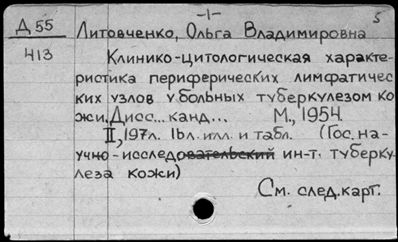 -1-
5
Д 55
Литовченко, Ольга Владимировна
413
Клинико-цитологическая характе-
ристика периферических лимфатичес
ких узлов у больных туберкулезом ко
жи. Дисс... канд... М., 1954.
II, 197л. 16л. илл. и табл. (Гос. на-
учно-исследовательский ин-т. туберку-
леза кожи)
См. след. карт.